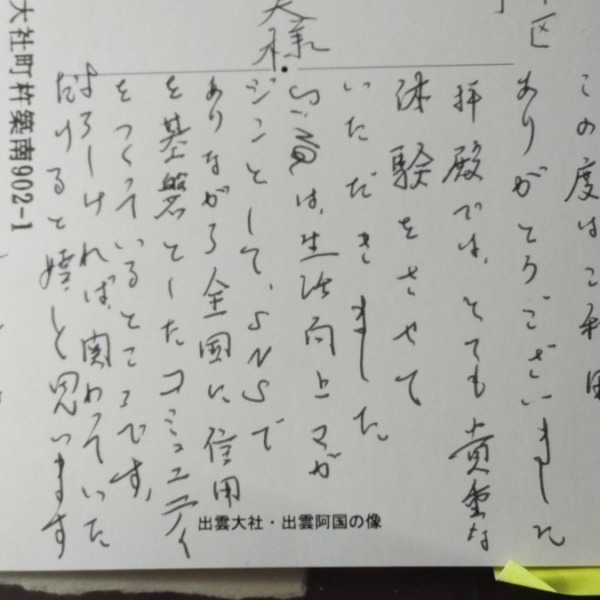 区
この度はご利用
ありがとうございました
拝殿では、とても貴重な
体験をさせて
いただきました。
は、生活向上マガ
ジンとして、SNSで
ありながら全国に信用
を基盤としたコミュニティ
をつくっているところです。
よろしければ、関わっていた
だけると嬉しと思います
様
大社町杵築南902-1
出雲大社・出雲阿国の像